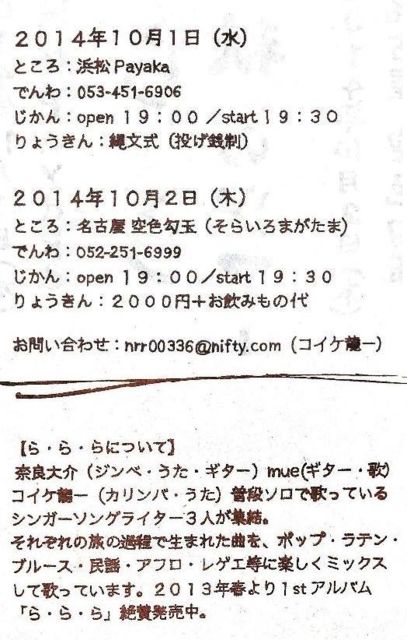 ２０１４年１０月１日（水）
ところ：浜松 Payaka
でんわ：053-451-6906
じかん：open １９：００／start１９：３０
りょうきん：縄文式（投げ銭制）
２０１４年１０月２日（木）
ところ：名古屋 空色勾玉（そらいろまがたま）
でんわ：052-251-6999
じかん：open １９：００／start１９：３０
りょうきん：２０００円＋お飲みもの代
お問い合わせ：nrr00336@nifty.com（コイケ龍一）
【ら・ら・らについて】
奈良大介（ジンベ・うた・ギター）mue(ギター・歌)
コイケ龍一（カリンバ・うた）普段ソロで歌っている
シンガーソングライター３人が集結。
それぞれの旅の過程で生まれた曲を、ポップ・ラテン・
ブルース・民謡・アフロ・レゲエ等に楽しくミックス
して歌っています。２０１３年春より１stアルバム
「ら・ら・ら」絶賛発売中。